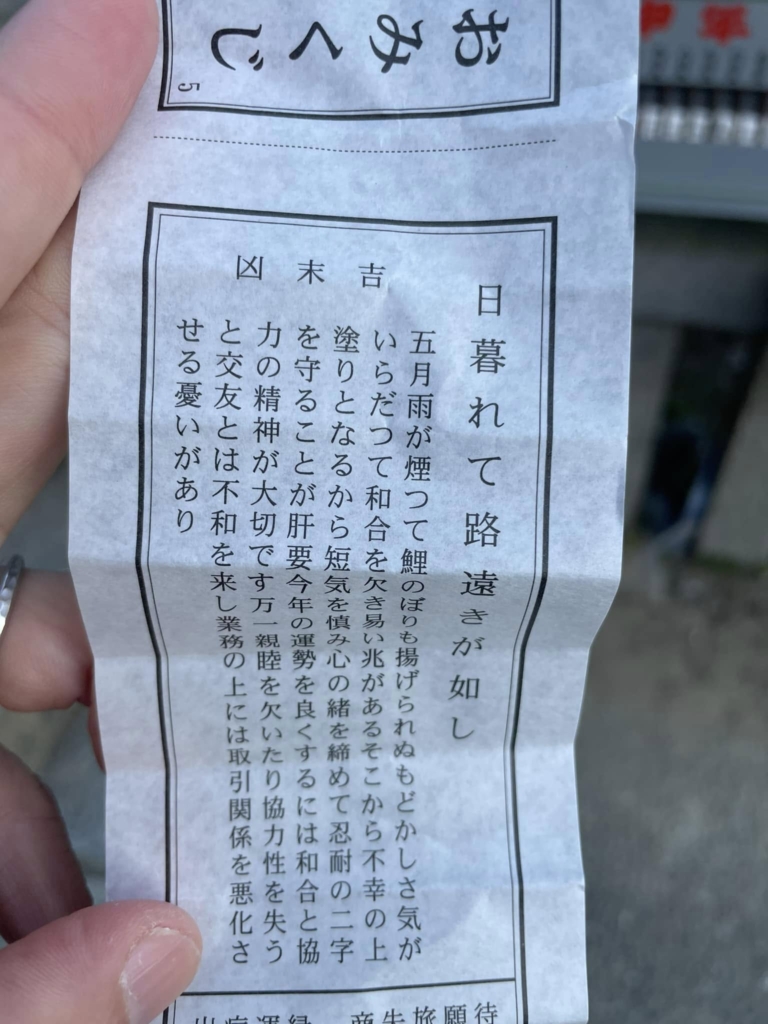 おみくじ
5
日暮れて路遠きが如し
吉末凶
五月雨が煙つて鯉のぼりも揚げられぬもどかしさ気が
いらだつて和合を欠き易い兆があるそこから不幸の上
塗りとなるから短気を慎み心の緒を締めて忍耐の二字
を守ることが肝要今年の運勢を良くするには和合と協
力の精神が大切です万一親睦を欠いたり協力性を失う
と交友とは不和を来し業務の上には取引関係を悪化さ
せる憂いがあり
待
願
旅